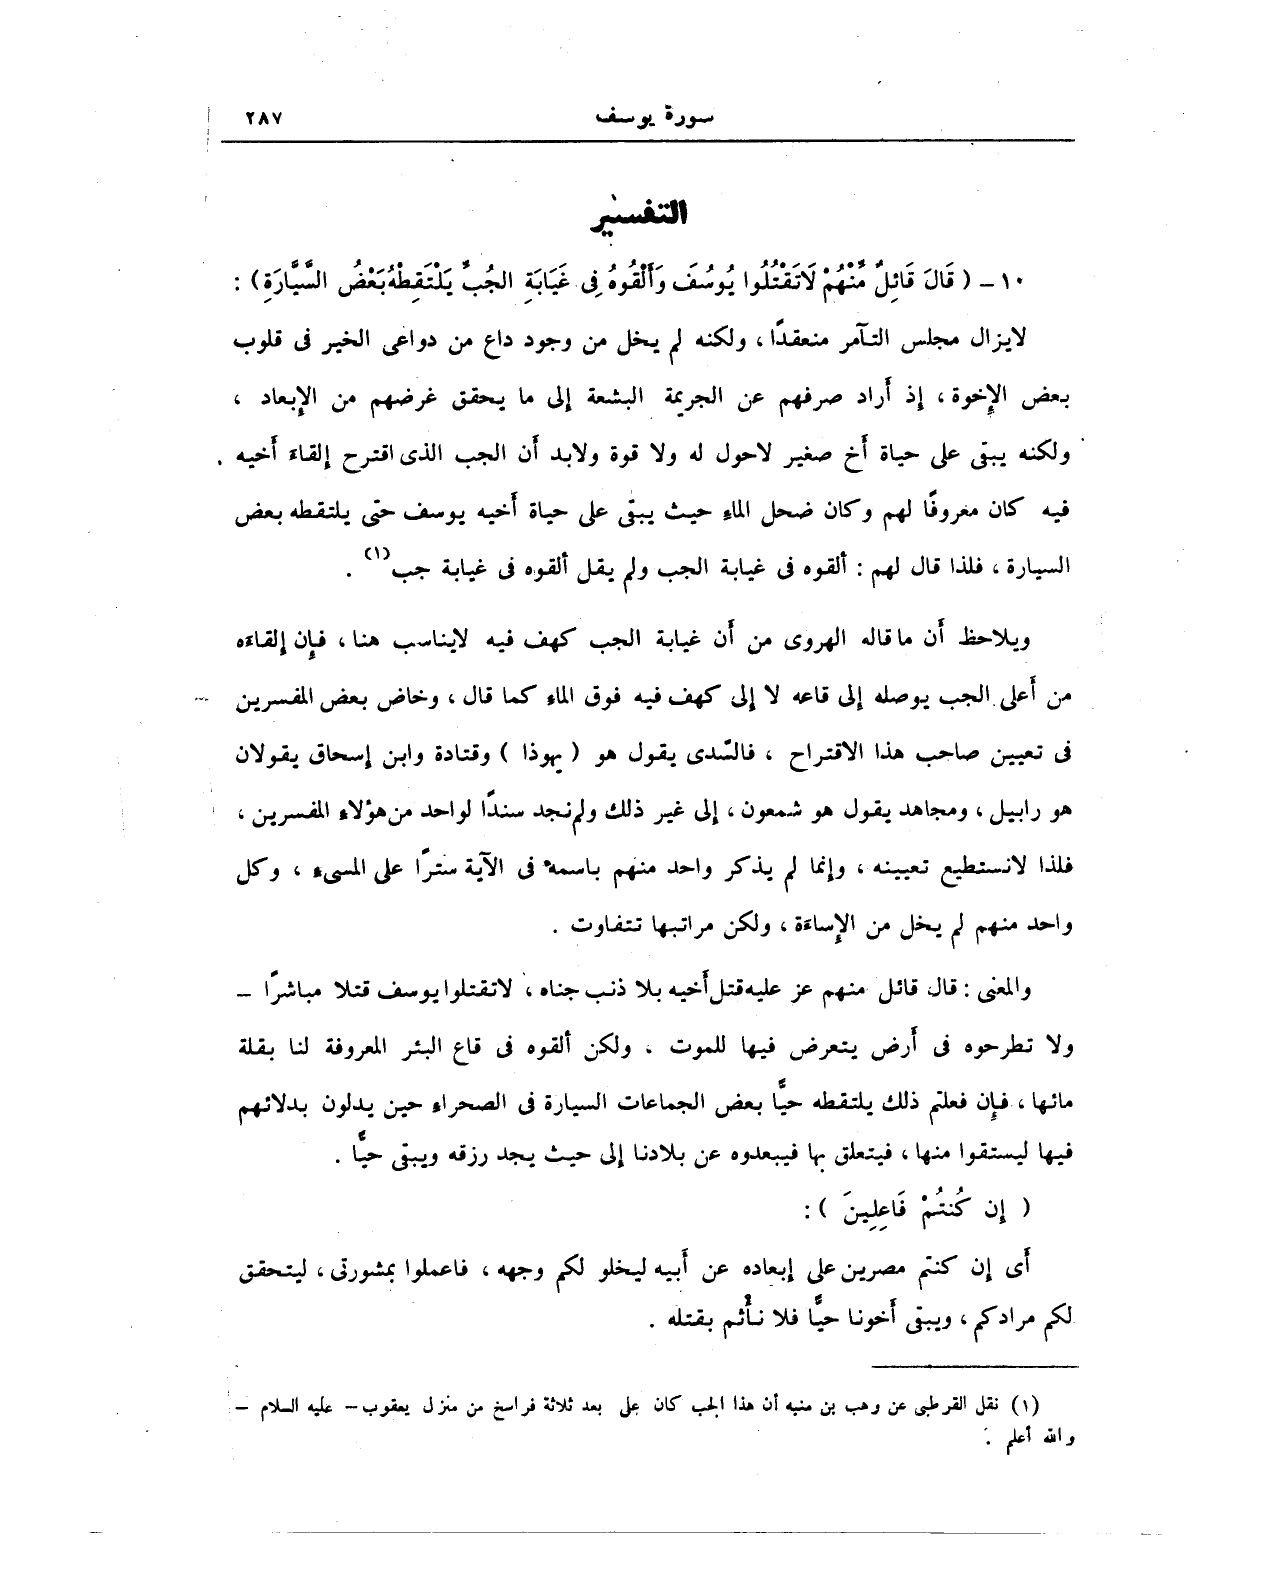 سورة يوسف ٢٨٧
التفسير
١٠ – ( قَالَ قَائِلٌ مِّنْهُمْ لَا تَقْتُلُوا يُوسُفَ وَأَلْقُوهُ فِى غَيَابَةِ الجُبِّ يَلْتَقِطْهُ بَعْضُ السَّيَّارَةِ ) :
لايزال مجلس التآمر منعقدًا ، ولكنه لم يخل من وجود داع من دواعى الخير فى قلوب
بعض الإخوة ، إذ أراد صرفهم عن الجريمة البشعة إلى ما يحقق غرضهم من الإبعاد ،
ولكنه يبقى على حياة أخ صغير لاحول له ولا قوة ولابد أن الجب الذى اقترح إلقاء أخيه
فيه كان معروفًا لهم وكان ضحل الماء حيث يبقى على حياة أخيه يوسف حتى يلتقطه بعض
السيارة ، فلذا قال لهم : ألقوه فى غيابة الجب ولم يقل ألقوه فى غيابة جب (١) .
ويلاحظ أن ماقاله الهروى من أن غيابة الجب كهف فيه لايناسب هنا ، فإن إلقاءه
من أعلى الجب يوصله إلى قاعه لا إلى كهف فيه فوق الماء كما قال ، وخاض بعض المفسرين
فى تعيين صاحب هذا الاقتراح ، فالسّدى يقول هو ( يهوذا ) وقتادة وابن إسحاق يقولان
هو رابيل ، ومجاهد يقول هو شمعون ، إلى غير ذلك ولم نجد سندًا لواحد من هؤلاء المفسرين ،
فلذا لانستطيع تعيينه ، وإنما لم يذكر واحد منهم باسمه فى الآية سترًا على المسىء ، وكل
واحد منهم لم يخل من الإساءة ، ولكن مراتبها تتفاوت .
والمعنى : قال قائل منهم عز عليه قتل أخيه بلا ذنب جناه ، لاتقتلوا يوسف قتلا مباشرًا –
ولا تطرحوه فى أرض يتعرض فيها للموت ، ولكن ألقوه فى قاع البئر المعروفة لنا بقلة
مائها ، فإن فعلتم ذلك يلتقطه حيًّا بعض الجماعات السيارة فى الصحراء حين يدلون بدلائهم
فيها ليستقوا منها ، فيتعلق بها فيبعدوه عن بلادنا إلى حيث يجد رزقه ويبقى حيًّا .
( إِن كُنتُمْ فَاعِلِينَ ) :
أى إن كنتم مصرين على إبعاده عن أبيه ليخلو لكم وجهه ، فاعملوا بمشورتى ، ليتحقق
لكم مرادكم ، ويبقى أخونا حيًّا فلا نأْثم بقتله .
(١) نقل القرطبى عن وهب بن منبه أن هذا الجب كان على بعد ثلاثة فراسخ من منزل يعقوب – عليه السلام –
والله أعلم .